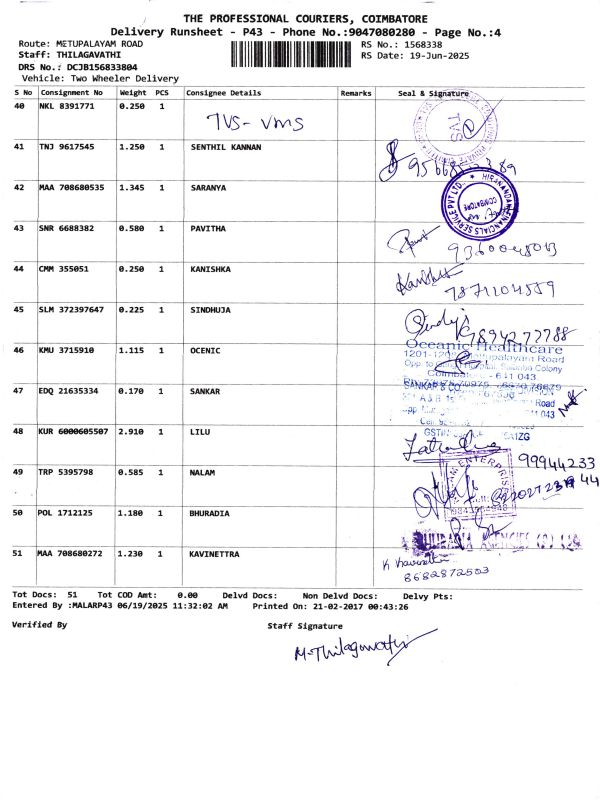 THE PROFESSIONAL COURIERS, COIMBATORE
Delivery Runsheet - P43 - Phone No.:9047080280 - Page No.:4
Route: METUPALAYAM ROAD RS No.: 1568338
Staff: THILAGAVATHI RS Date: 19-Jun-2025
DRS No.: DCJB156833804
Vehicle: Two Wheeler Delivery
S No Consignment No Weight PCS Consignee Details Remarks Seal & Signature
40 NKL 8391771 0.250 1 TVS- VMS
TVS
41 TNJ 9617545 1.250 1 SENTHIL KANNAN
42 MAA 708680535 1.345 1 SARANYA
COIMBATORE
43 SNR 6688382 0.580 1 PAVITHA
44 CMM 355051 0.250 1 KANISHKA
7871104559
45 SLM 372397647 0.225 1 SINDHUJA
7894277788
46 KMU 3715910 1.115 1 OCENIC
Oceanic Healthcare
Road
Colony
641 043
47 EDQ 21635334 0.170 1 SANKAR
SANKAR & CO
Road
48 KUR 6000605507 2.910 1 LILU
49 TRP 5395798 0.585 1 NALAM
99944233
44
50 POL 1712125 1.180 1 BHURADIA
51 MAA 708680272 1.230 1 KAVINETTRA
8682872503
Tot Docs: 51 Tot COD Amt: 0.00 Delvd Docs: Non Delvd Docs: Delvy Pts:
Entered By :MALARP43 06/19/2025 11:32:02 AM Printed On: 21-02-2017 00:43:26
Verified By Staff Signature
M.Thilagavathi